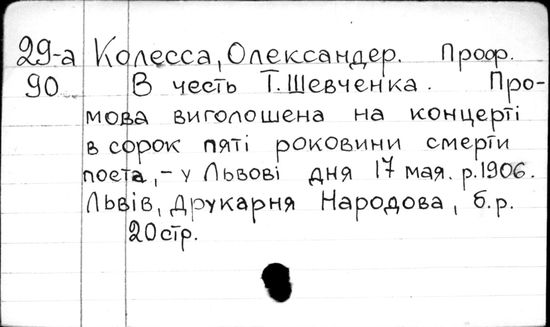 29-а Колесса, Олександер. Проф.
90 В честь Т. Шевченка. Про-
мова виголошена на концерті
в сорок пяті роковини смерти
поета, - у Львові дня 17 мая. р. 1906.
Львів, Друкарня Народова, б.р.
20 стр.